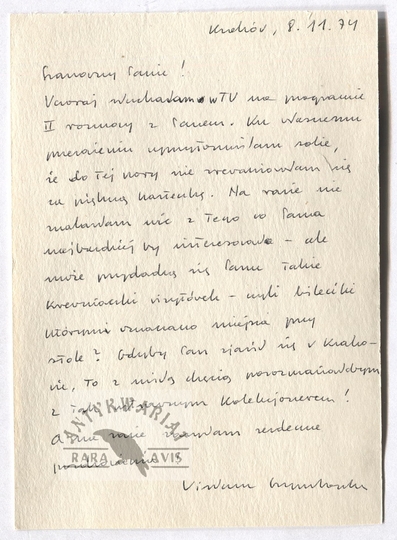 Kraków, 8.11.74
Szanowny Panie!
Wczoraj słuchałam w TV na programie
II rozmowy z Panem. Ku własnemu
przerażeniu uprzytomniłam sobie,
że do tej pory nie zrewanżowałam się
za piękną karteczkę. Na razie nie
znalazłam nic z tego co Pana
najbardziej by interesowało – ale
może przydadzą się Panu takie
krewniaczki wizytówek – czyli bileciki
którymi oznaczano miejsca przy
stole? Gdyby Pan zjawił się w Krako-
wie, to z miłą chęcią porozmawiałabym
z tak Kolekcjonerem!
A na razie serdeczne
pozdrowienia
Wisława Szymborska
ANTYKWARIAT
RARA AVIS